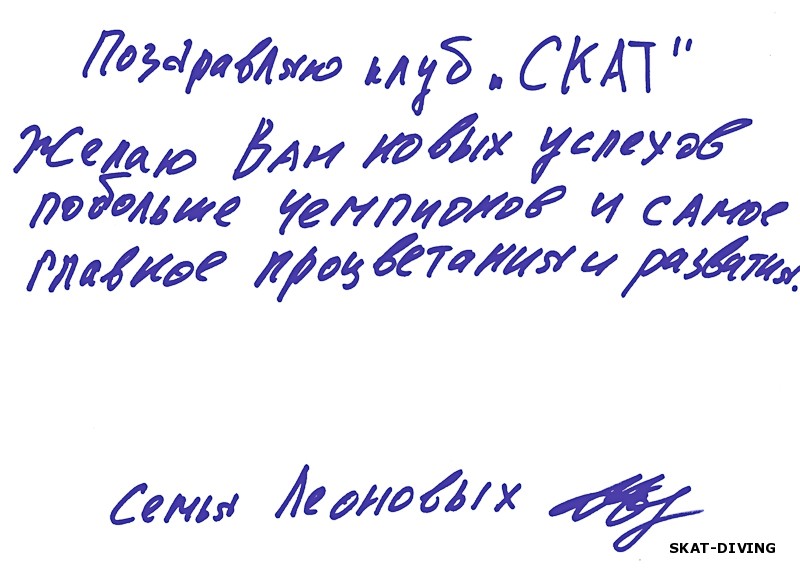 Поздравляю клуб „СКАТ"
Желаю Вам новых успехов
побольше чемпионов и самое
главное процветания и разватия.
Семья Леоновых
SKAT-DIVING